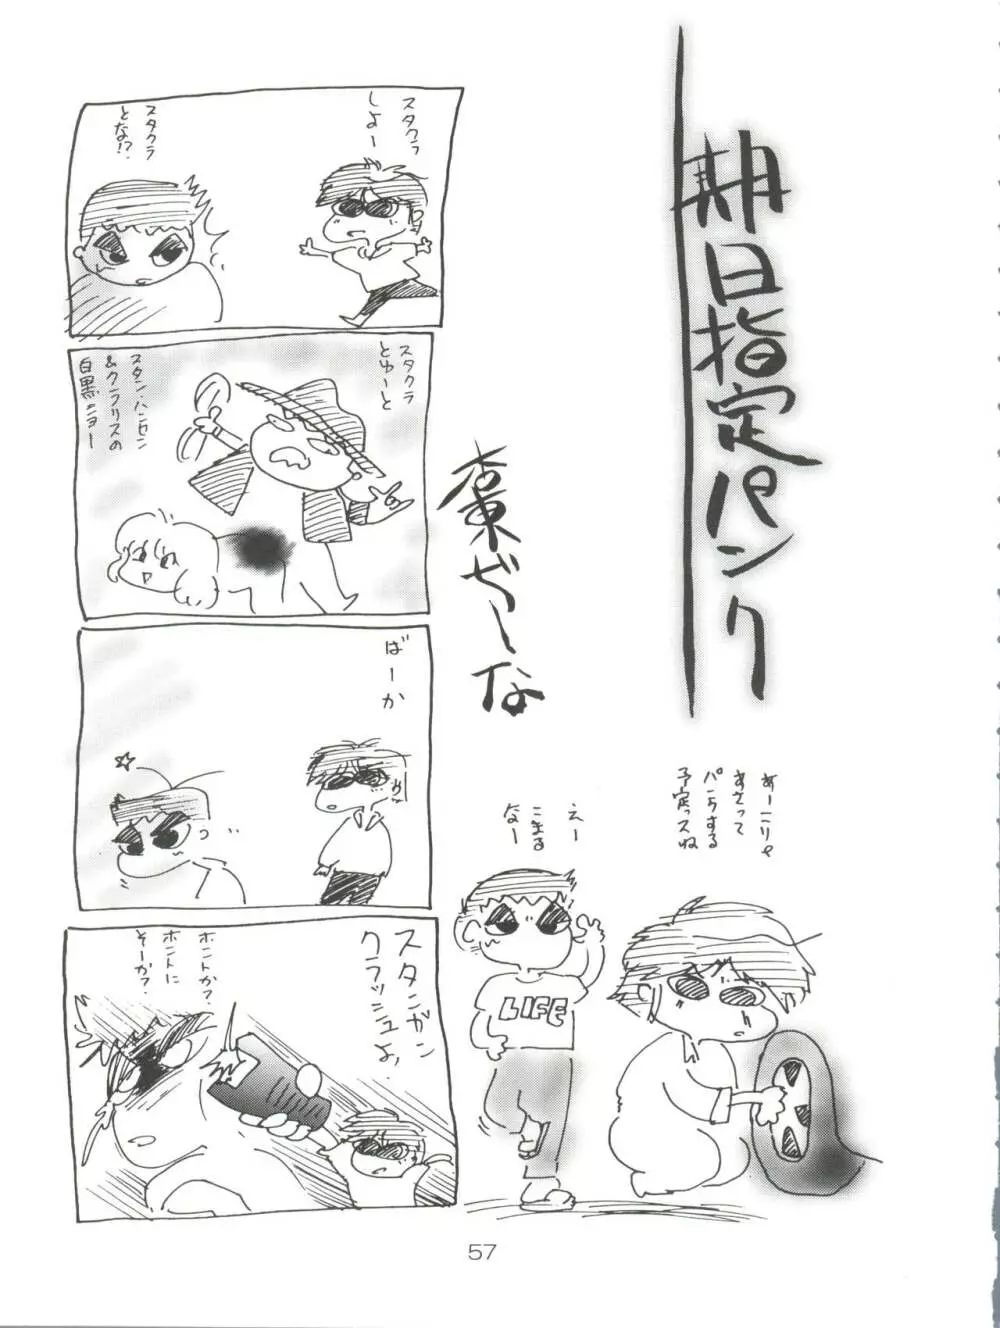 期日指定パンク
スタクラ
しよー
スタクラ
とな!?
スタクラ
とゆーと
スタン・ハンセン
&クラリスの
白黒ショー
ばーか
スタンガン
クラッシュよ
ホントか?
ホントに
そーか?
あーこりゃ
あさって
パンクする
予定っスね
えー
こまる
なー
LIFE
57